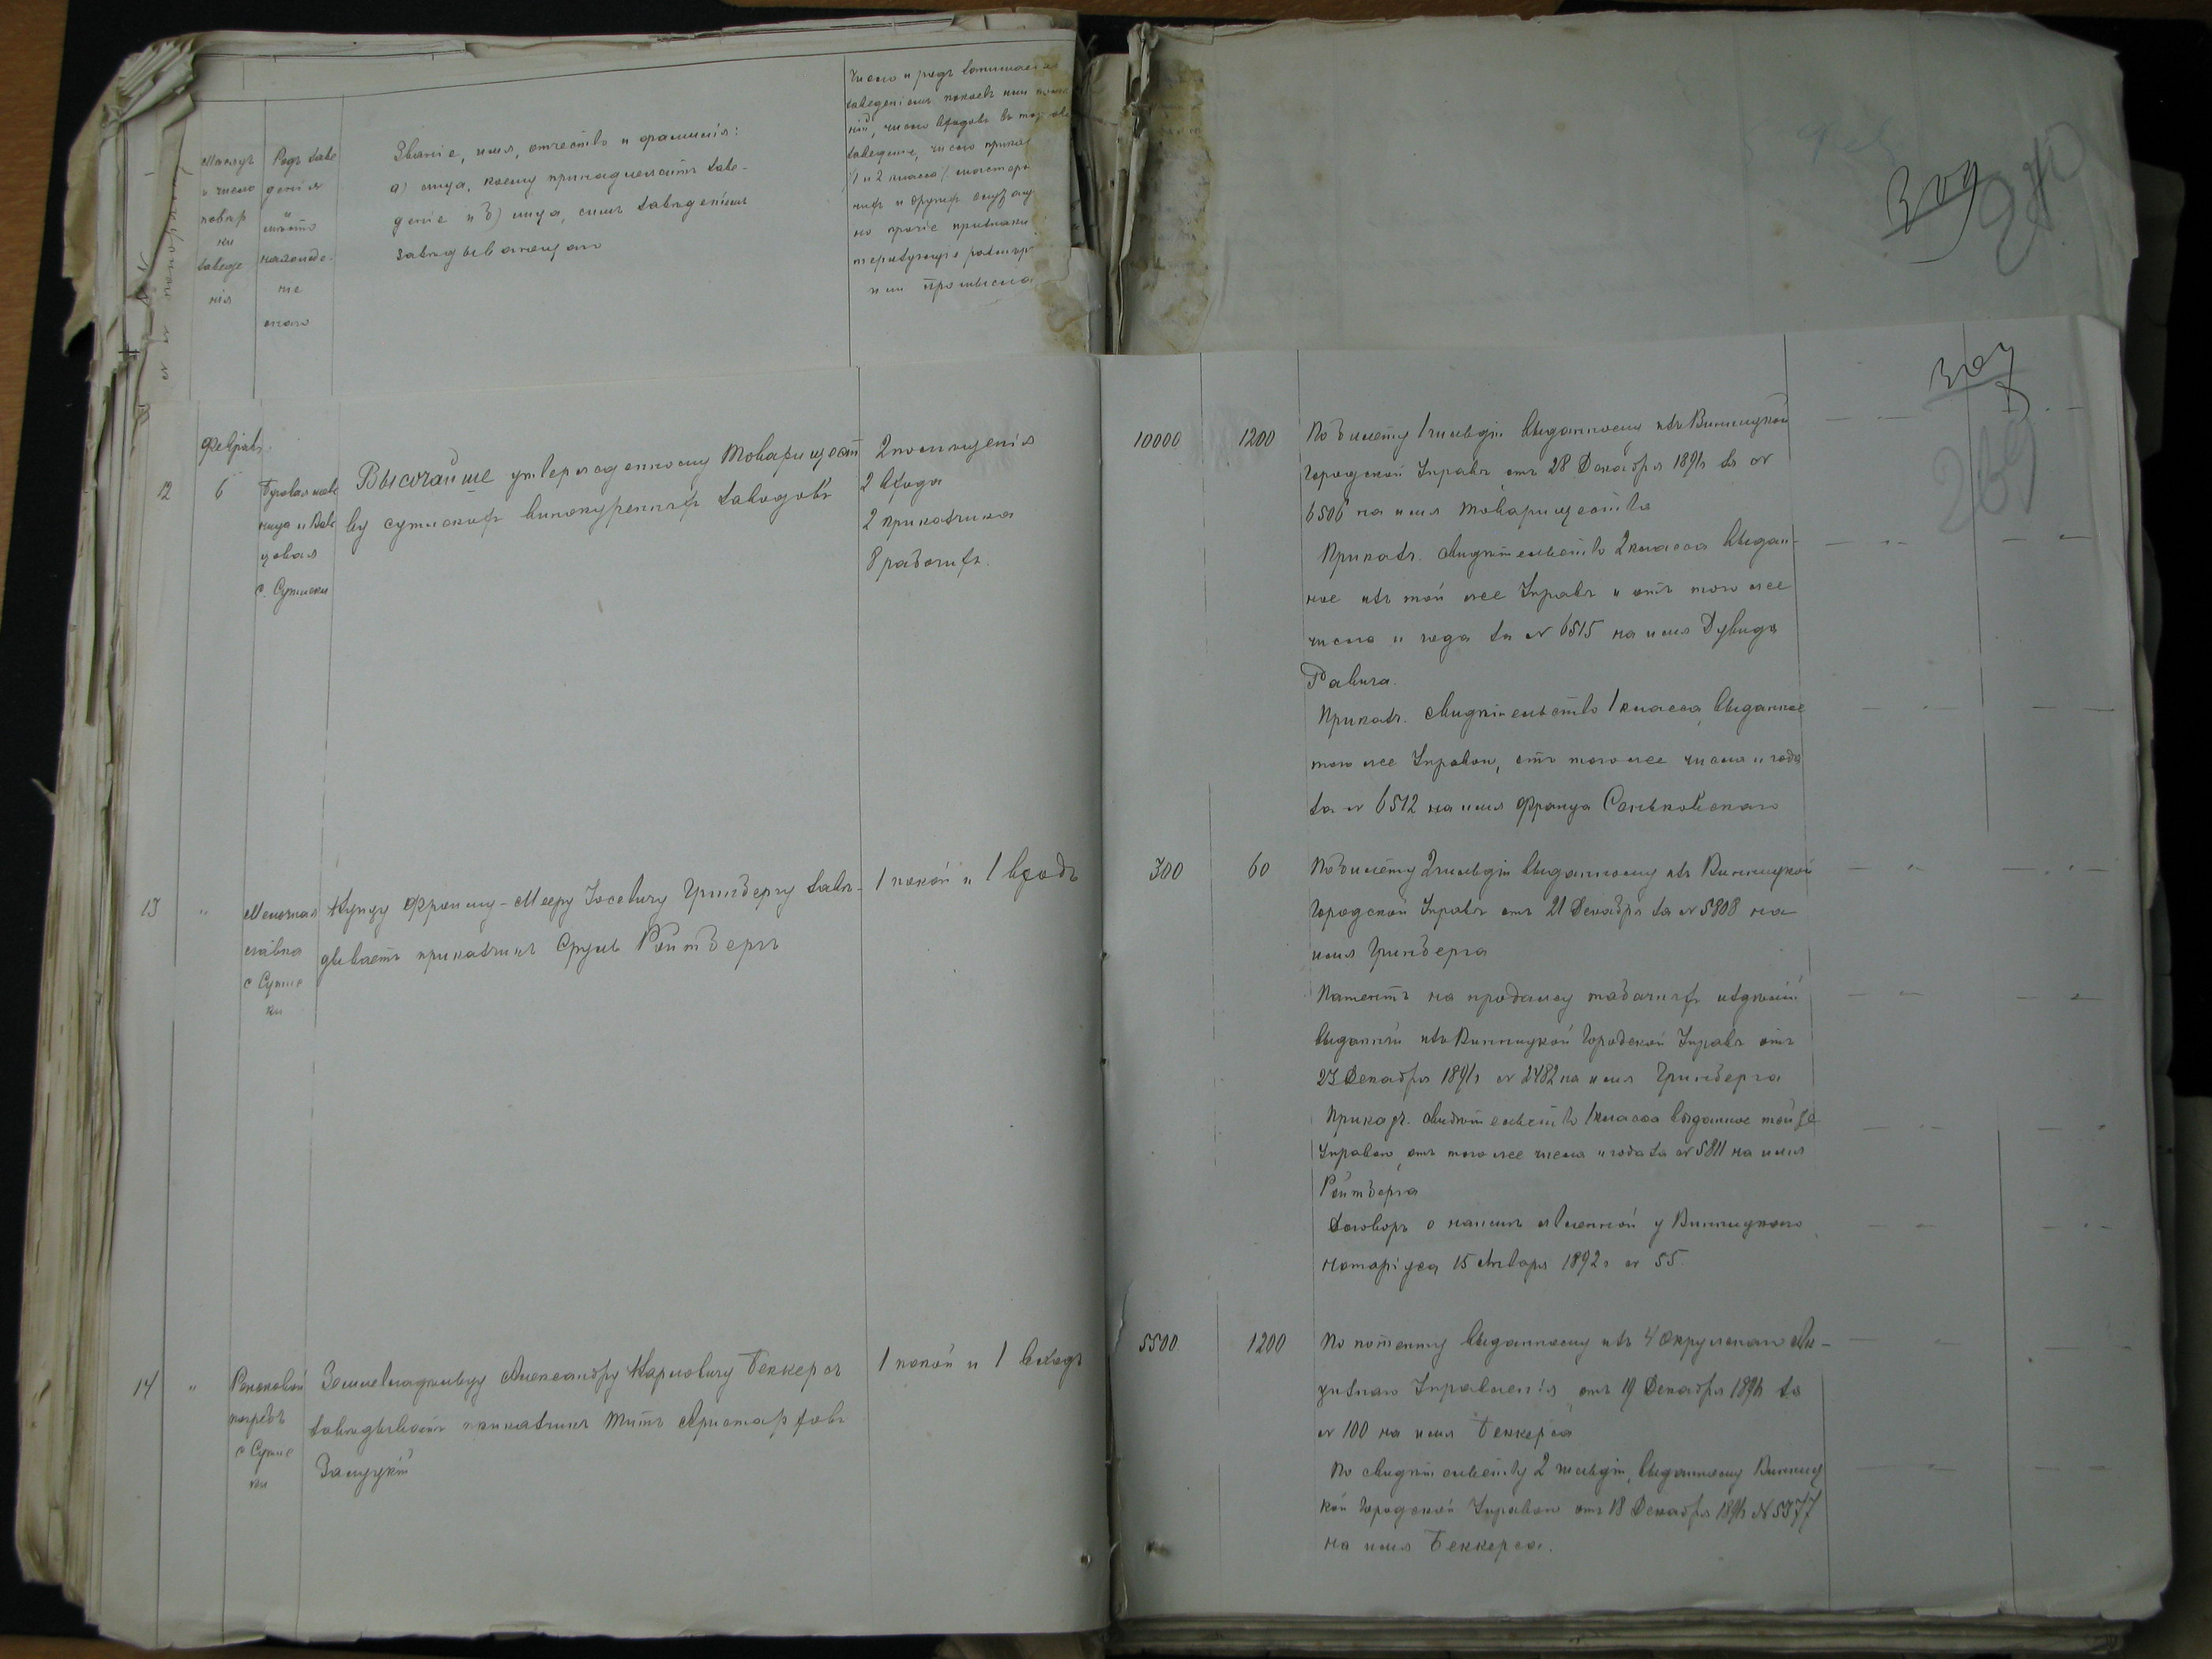 Мѣсяцъ
и число
повѣр
ки
заведе
нія
Родъ заве
денія
и
мѣсто
нахожде-
ніе
онаго
Званіе, имя, отчество и фамилія:
а) лица, коему принадлежитъ заве-
деніе и б) лица, симъ заведеніемъ
завѣдывающаго
Число и родъ занимаемыхъ
заведеніемъ покоевъ или
число входовъ въ
заведеніе, число
1 и 2 класса, мастеро
чихъ и другихъ
но прочіе признаки
теризующіе размѣръ
или промысла
309
309
269
Февраль
12
6
с. Сутиски
Высочайше утвержденному Товарищест
ву сутискихъ винокуренныхъ заводовъ
2 помѣщенія
2 входа
2 прикащика
8 рабочихъ.
10000
1200
По билету 1 гильдіи выданному изъ Винницкой
Городской Управы отъ 28 Декабря 1891 г за №
6506 на имя Товарищества
Приказч. свидѣтельство 2 класса выдан-
ное изъ той же Управы и отъ того же
числа и года за № 6515 на имя Дувида
Равича.
Приказч. свидѣтельство 1 класса, выданное
тою же Управою, отъ того же числа и года
за № 6512 на имя Франца Саньковскаго
13
"
Мелочная
лавка
с Сутис
ки
Купцу Фроиму-Мееру Іосевичу Гринбергу завѣ-
дываетъ прикащикъ Сруль Ройтбергъ
1 покой и 1 входъ
300
60
По билету 2 гильдіи выданному изъ Винницкой
Городской Управы отъ 21 Декабря за № 5808 на
имя Гринберга
Патентъ на продажу табачныхъ издѣлій
выданный изъ Винницкой Городской Управы отъ
23 Декабря 1891 г № 2482 на имя Гринберга
Приказч. свидѣтельство 1 класса выданное той же
Управою, отъ того же числа и года за № 5811 на имя
Ройтберга
Договоръ о наймѣ явленной у Винницкаго
нотаріуса 15 Января 1892 г № 55.
14
"
погребъ
с Сутис
ки
Землевладѣльцу Александру Карловичу Беккерсъ
завѣдываетъ прикащикъ Титъ Аристарховъ
1 покой и 1 входъ
5500
1200
По патенту выданному изъ 4 Окружнаго Ак-
цизнаго Управленія отъ 19 Декабря 1891 за
№ 100 на имя Беккерса
По свидѣтельству 2 гильдіи, выданному Винниц
кой Городской Управою отъ 18 Декабря 1891 № 5377
на имя Беккерса.